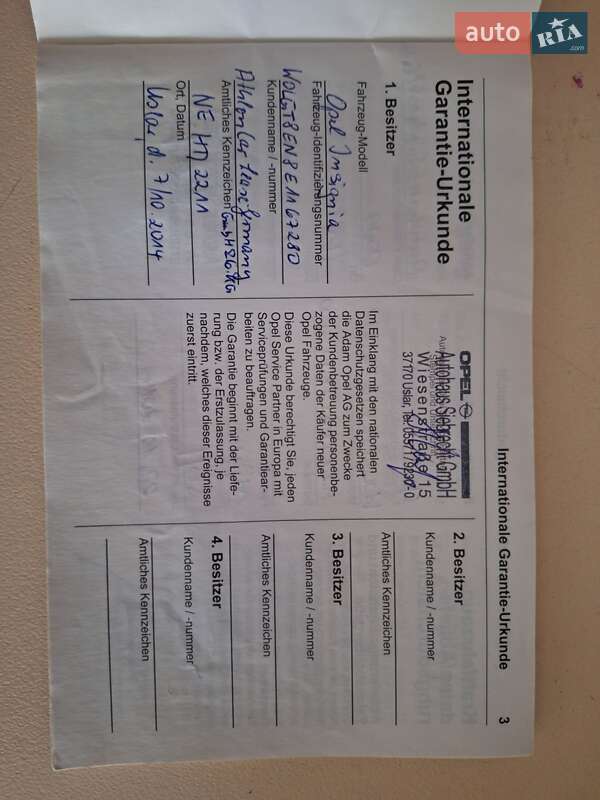 Internationale Garantie-Urkunde 3
Internationale
Garantie-Urkunde
1. Besitzer
Fahrzeug-Modell
Opel Insignia
Fahrzeug-Identifizierungsnummer
Kundenname / -nummer
Athlon Car Lease Germany
Amtliches Kennzeichen GmbH & Co. KG
NE HD 2211
Ort, Datum
Uslar, d. 7/10.2014
OPEL
Autohaus Siebrecht GmbH
Wiesenstraße 15
37170 Uslar, Tel.
Im Einklang mit den nationalen
Datenschutzgesetzen speichert
die Adam Opel AG zum Zwecke
der Kundenbetreuung personenbe-
zogene Daten der Käufer neuer
Opel Fahrzeuge.
Diese Urkunde berechtigt Sie, jeden
Opel Service Partner in Europa mit
Serviceprüfungen und Garantiear-
beiten zu beauftragen.
Die Garantie beginnt mit der Liefe-
rung bzw. der Erstzulassung, je
nachdem, welches dieser Ereignisse
zuerst eintritt.
2. Besitzer
Kundenname / -nummer
Amtliches Kennzeichen
3. Besitzer
Kundenname / -nummer
Amtliches Kennzeichen
4. Besitzer
Kundenname / -nummer
Amtliches Kennzeichen
auto RIA .com